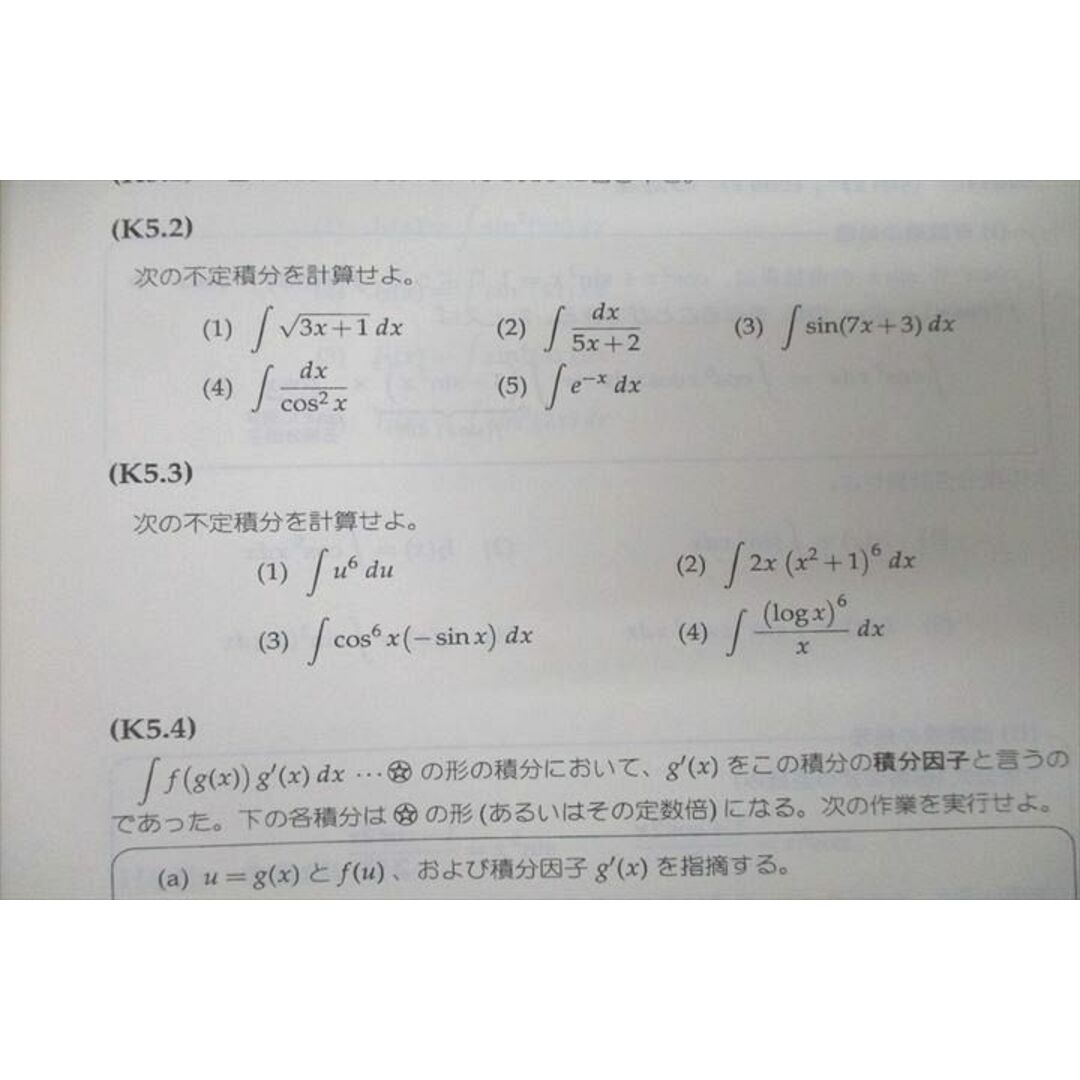 (K5.2)
次の不定積分を計算せよ。
(1) ∫ √(3x+1) dx (2) ∫ dx/(5x+2) (3) ∫ sin(7x+3) dx
(4) ∫ dx/cos² x (5) ∫ e⁻ˣ dx
(K5.3)
次の不定積分を計算せよ。
(1) ∫ u⁶ du (2) ∫ 2x (x²+1)⁶ dx
(3) ∫ cos⁶ x(−sin x) dx (4) ∫ (log x)⁶/x dx
(K5.4)
∫ f(g(x)) g′(x) dx ⋯ ✪ の形の積分において、g′(x) をこの積分の積分因子と言うの
であった。下の各積分は ✪ の形 (あるいはその定数倍) になる。次の作業を実行せよ。
(a) u = g(x) と f(u) 、および積分因子 g′(x) を指摘する。